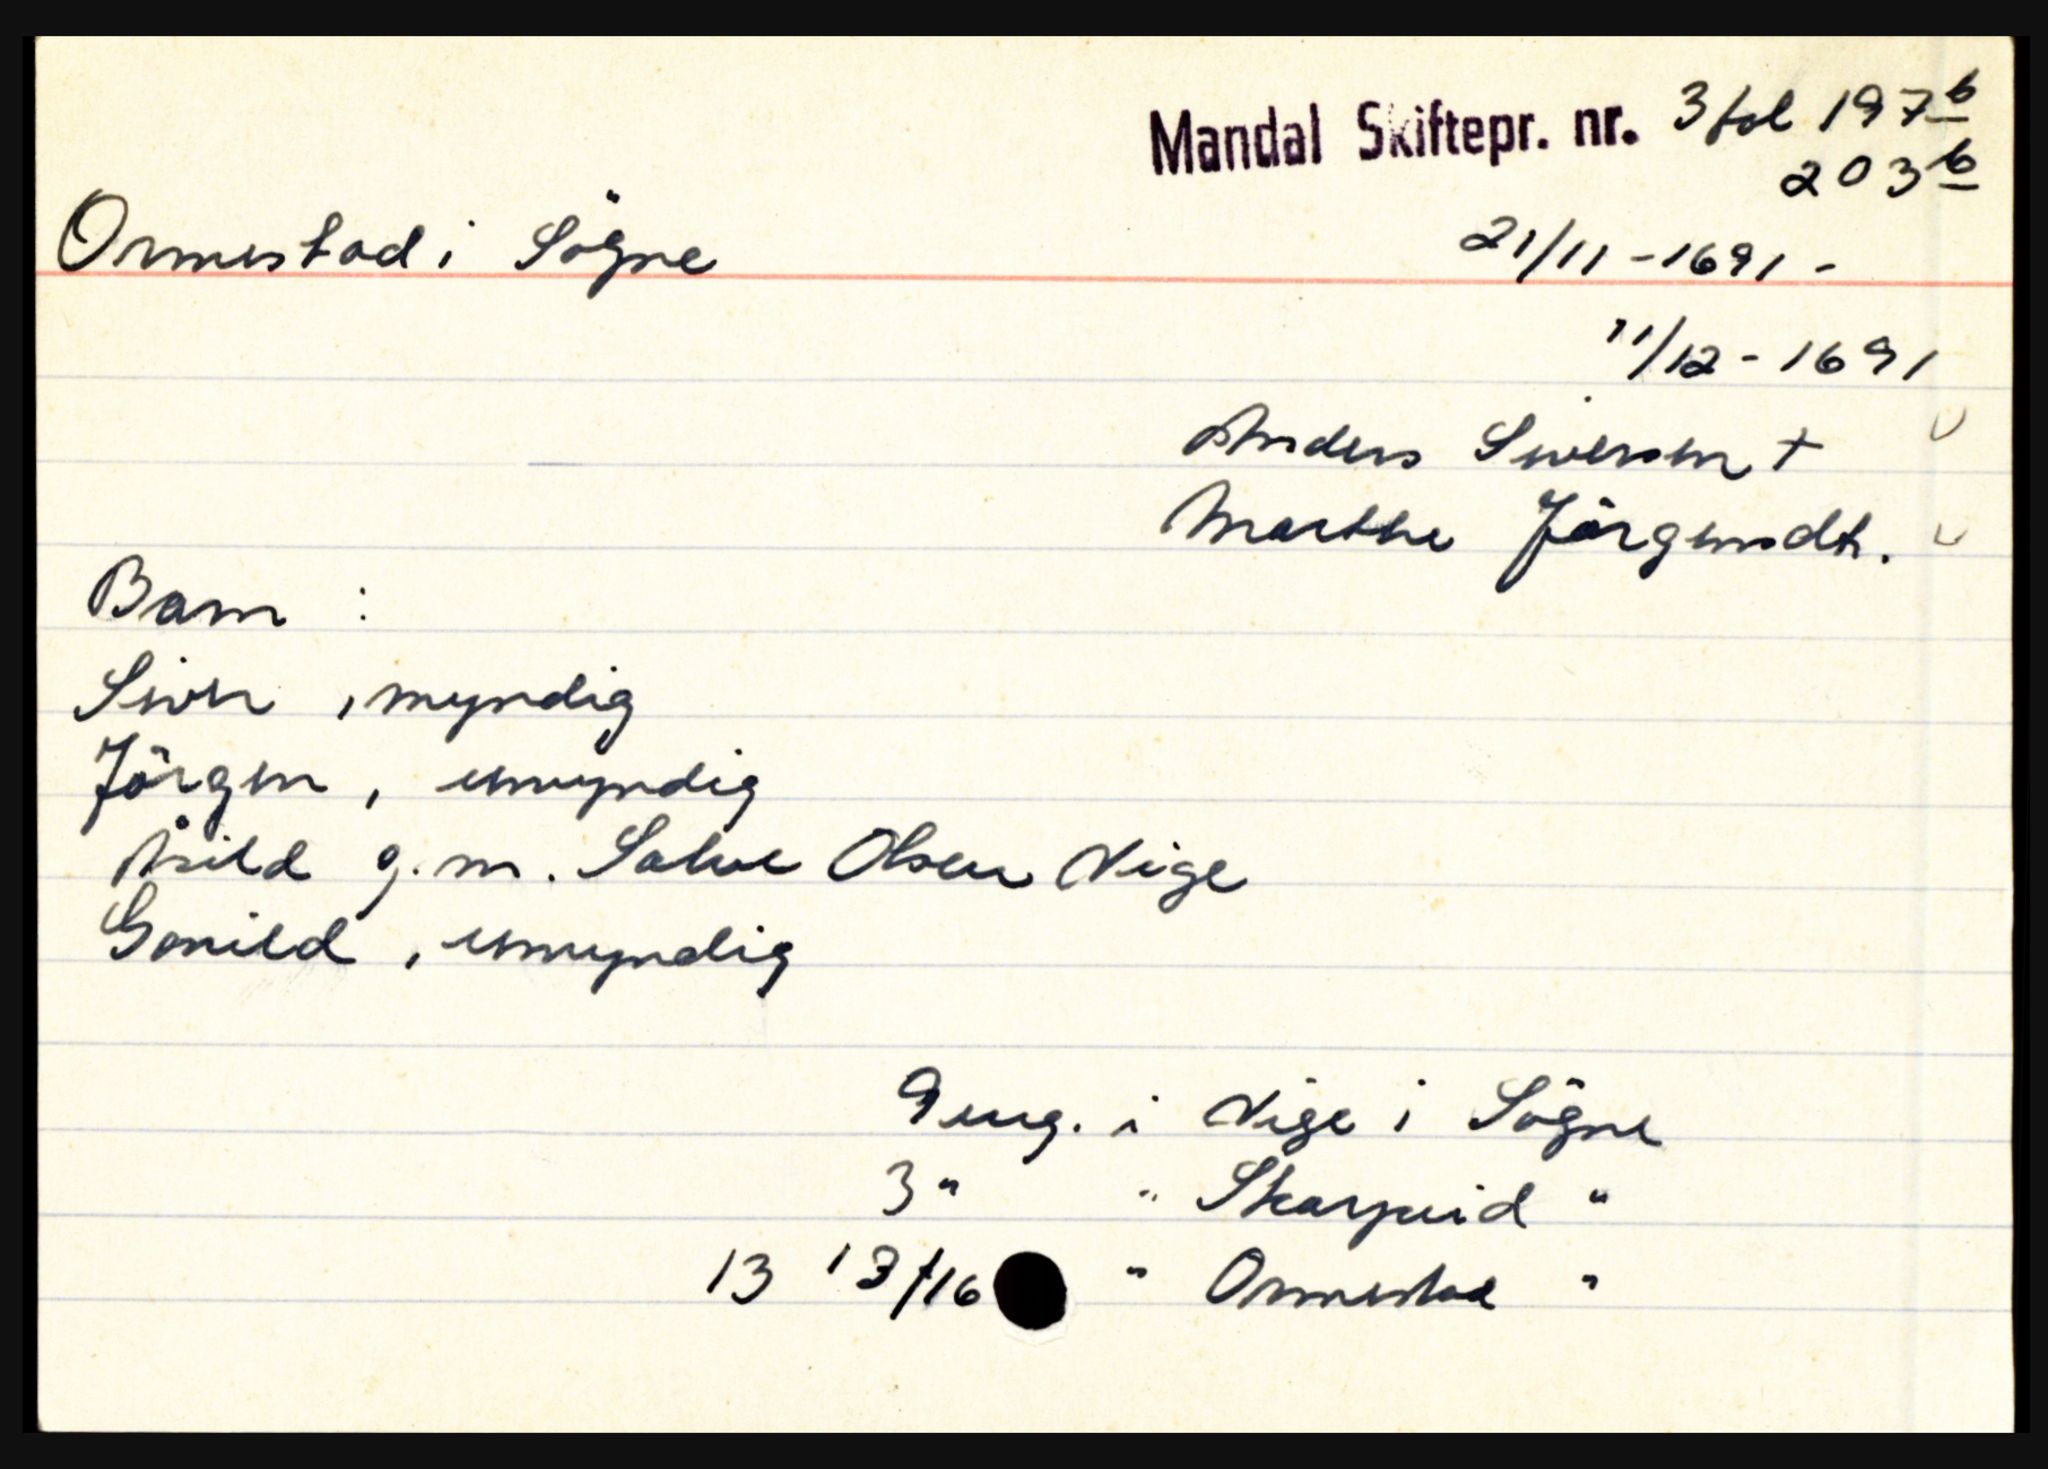 Mandal Skiftepr. nr. 3 fol 197b
203b
Ormestad i Sögne
21/11-1691-
11/12-1691
Anders Siversen +
Marthe Jörgensdt.
Barn :
Siver , myndig
Jörgen , umyndig
Åsild g.m. Salve Olsen Vige
Gonild , umyndig
9 eng. i Vige i Sögne
3 " " Skarpeid "
13 13/16 " Ormestad "